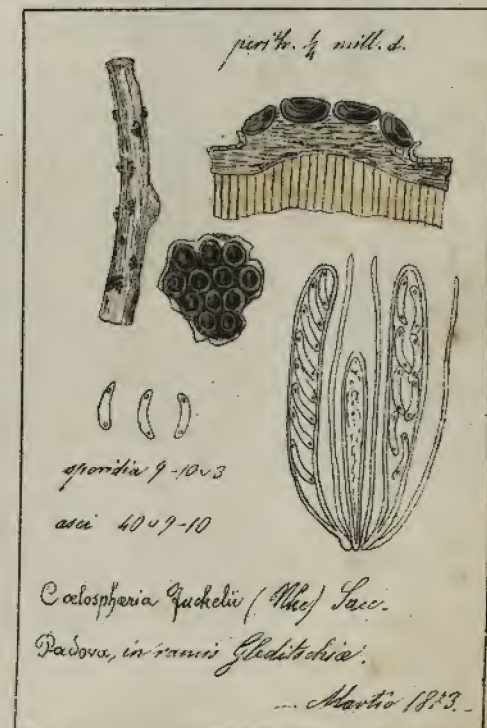 perith. ¼ mill. d.
sporidia 9-10 v 3
asci 40 v 9-10
Cœlosphæria Fuckelii (Nke) Sacc.
Padova, in ramis Gleditschiæ.
Martio 1873.